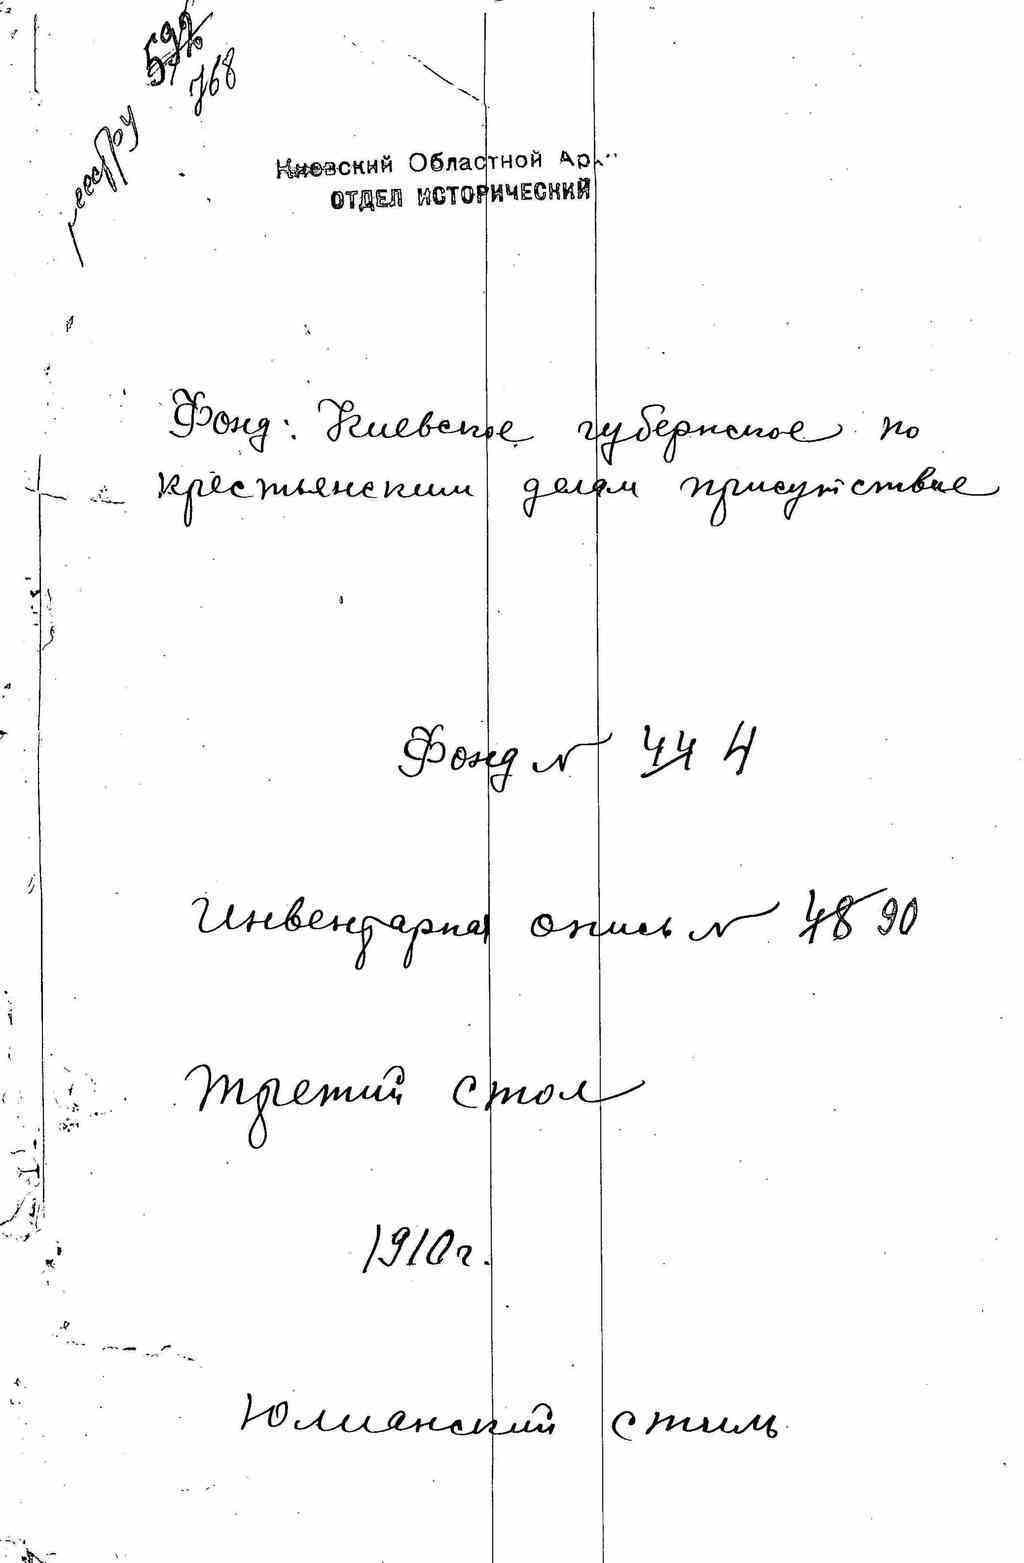 реестру 592
768
Киевский Областной Ар
ОТДЕЛ ИСТОРИЧЕСКИЙ
Фонд: Киевское губернское по
крестьянским делам присутствие
Фонд N 444
Инвентарная опись N 48 90
Третий стол
1910 г.
Юлианский стиль